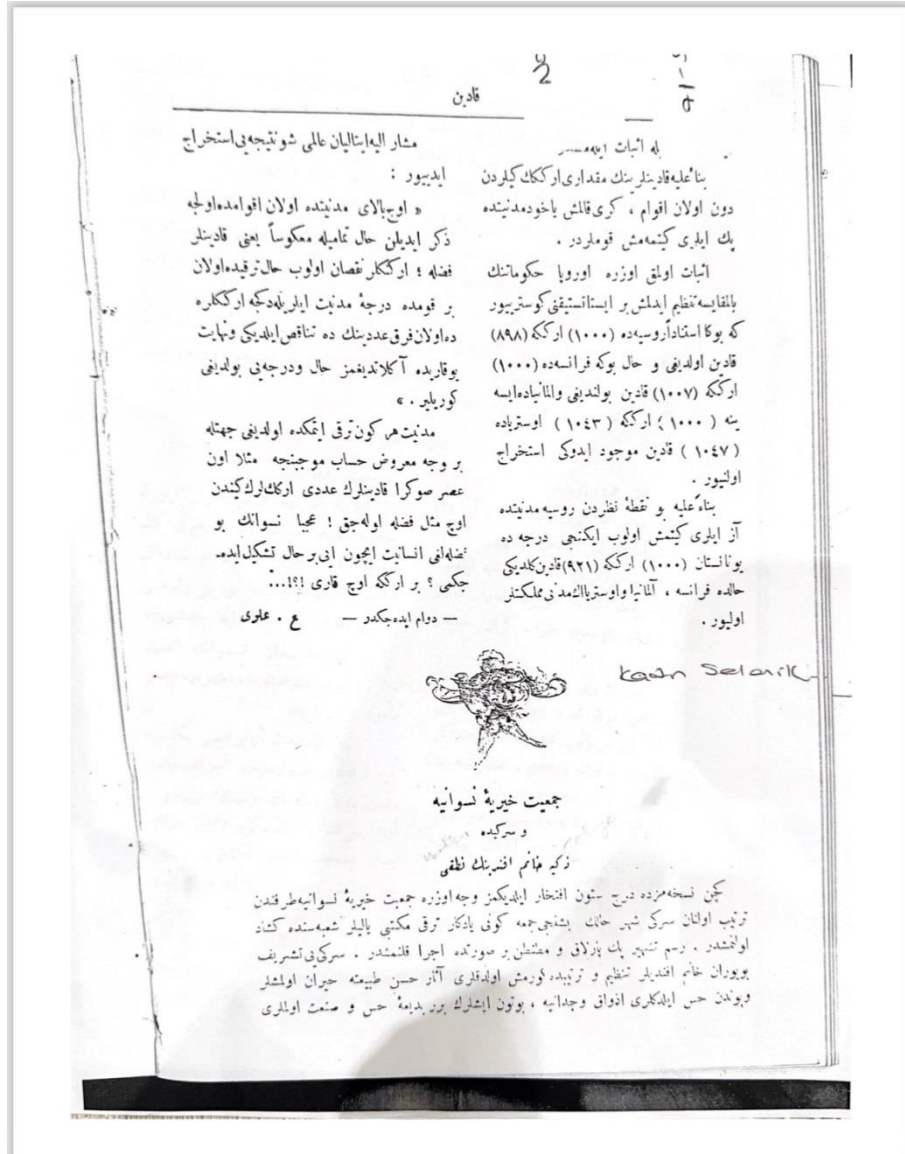 2
قادین
بله اثبات
بناءً علیه قادینلرینك مقداری ارككلركیلردن
دون اولان اقوام ، كری قالمش یاخود مدنیتده
پك ایلری كیتمه مش قوملردر .
اثبات اولمق اوزره اوروپا حكوماتنك
بالمقایسه تنظیم ایدلمش بر ایستاتستیقنی كوستریییور
كه بوكا استناداً روسیه ده (١٠٠٠) ارككه (٨٩٨)
قادین اولدیغی و حال بوكه فرانسه ده (١٠٠٠)
ارككه (١٠٠٧) قادین بولندیغی والمانیاده ایسه
ینه ( ١٠٠٠ ) ارككه ( ١٠٤٣ ) اوستریاده
( ١٠٤٧ ) قادین موجود ایدوكی استخراج
اولنیور .
بناءً علیه بو نقطۀ نظردن روسیه مدنیتده
آز ایلری كیتمش اولوب ایكنجی درجه ده
یونانستان (١٠٠٠) ارككه (٩٢١) قادین كلدیكی
حالده فرانسه ، آلمانیا واوستریا اك مدنی مملكتلر
اولیور .
مشار الیه ایتالیان عالمی شو نتیجه یی استخراج
ایدییور :
« اوج بالای مدنیتده اولان اقوامده اولجه
ذكر ایدیلن حال تمامیله معكوساً یعنی قادینلر
فضله ؛ ارككلر نقصان اولوب حال ترقیده اولان
بر قومده درجۀ مدنیت ایلریله دكجه ارككلره
ده اولان فرق عددینك ده تناقص ایلدیكی ونهایت
یوقاریده آكلاندیغمز حال ودرجه یی بولدیغی
كوریلیر . »
مدنیت هر كون ترقی ایتمكده اولدیغی جهتله
بر وجه معروض حساب موجبنجه مثلا اون
عصر صوكرا قادینلرك عددی اركك لرككندن
اوچ مثل فضله اوله جق ! عجبا نسوانك بو
فضله لغی انسانیت ایچون ایی بر حال تشكیل ایده‌-
جكمی ؟ بر ارككه اوچ قاری !؟!...
— دوام ایده جكدر — ع . علوی
Kadın Selanik
جمعیت خیریۀ نسوانیه
و سركیده
زكیه خانم افندینك نطقی
كچن نسخه مزده درج ستون افتخار ایلدیكمز وجه اوزره جمعیت خیریۀ نسوانیه طرفندن
ترتیب اولنان سركی شهر حالك بشنجی جمعه كونی یادكار ترقی مكتبی یالیلر شعبه سنده كشاد
اولنمشدر . رسم تشهیر پك پارلاق و مطنطن بر صورتده اجرا قلنمشدر . سركی یی تشریف
بویوران خانم افندیلر تنظیم و ترتیبده كورمش اولدقلری آثار حسن طبیعته حیران اولمشلر
وبوندن حس ایلدكلری اذواق وجدانیه ، بوتون ایشلرك برر بدیعۀ حس و صنعت اولملری